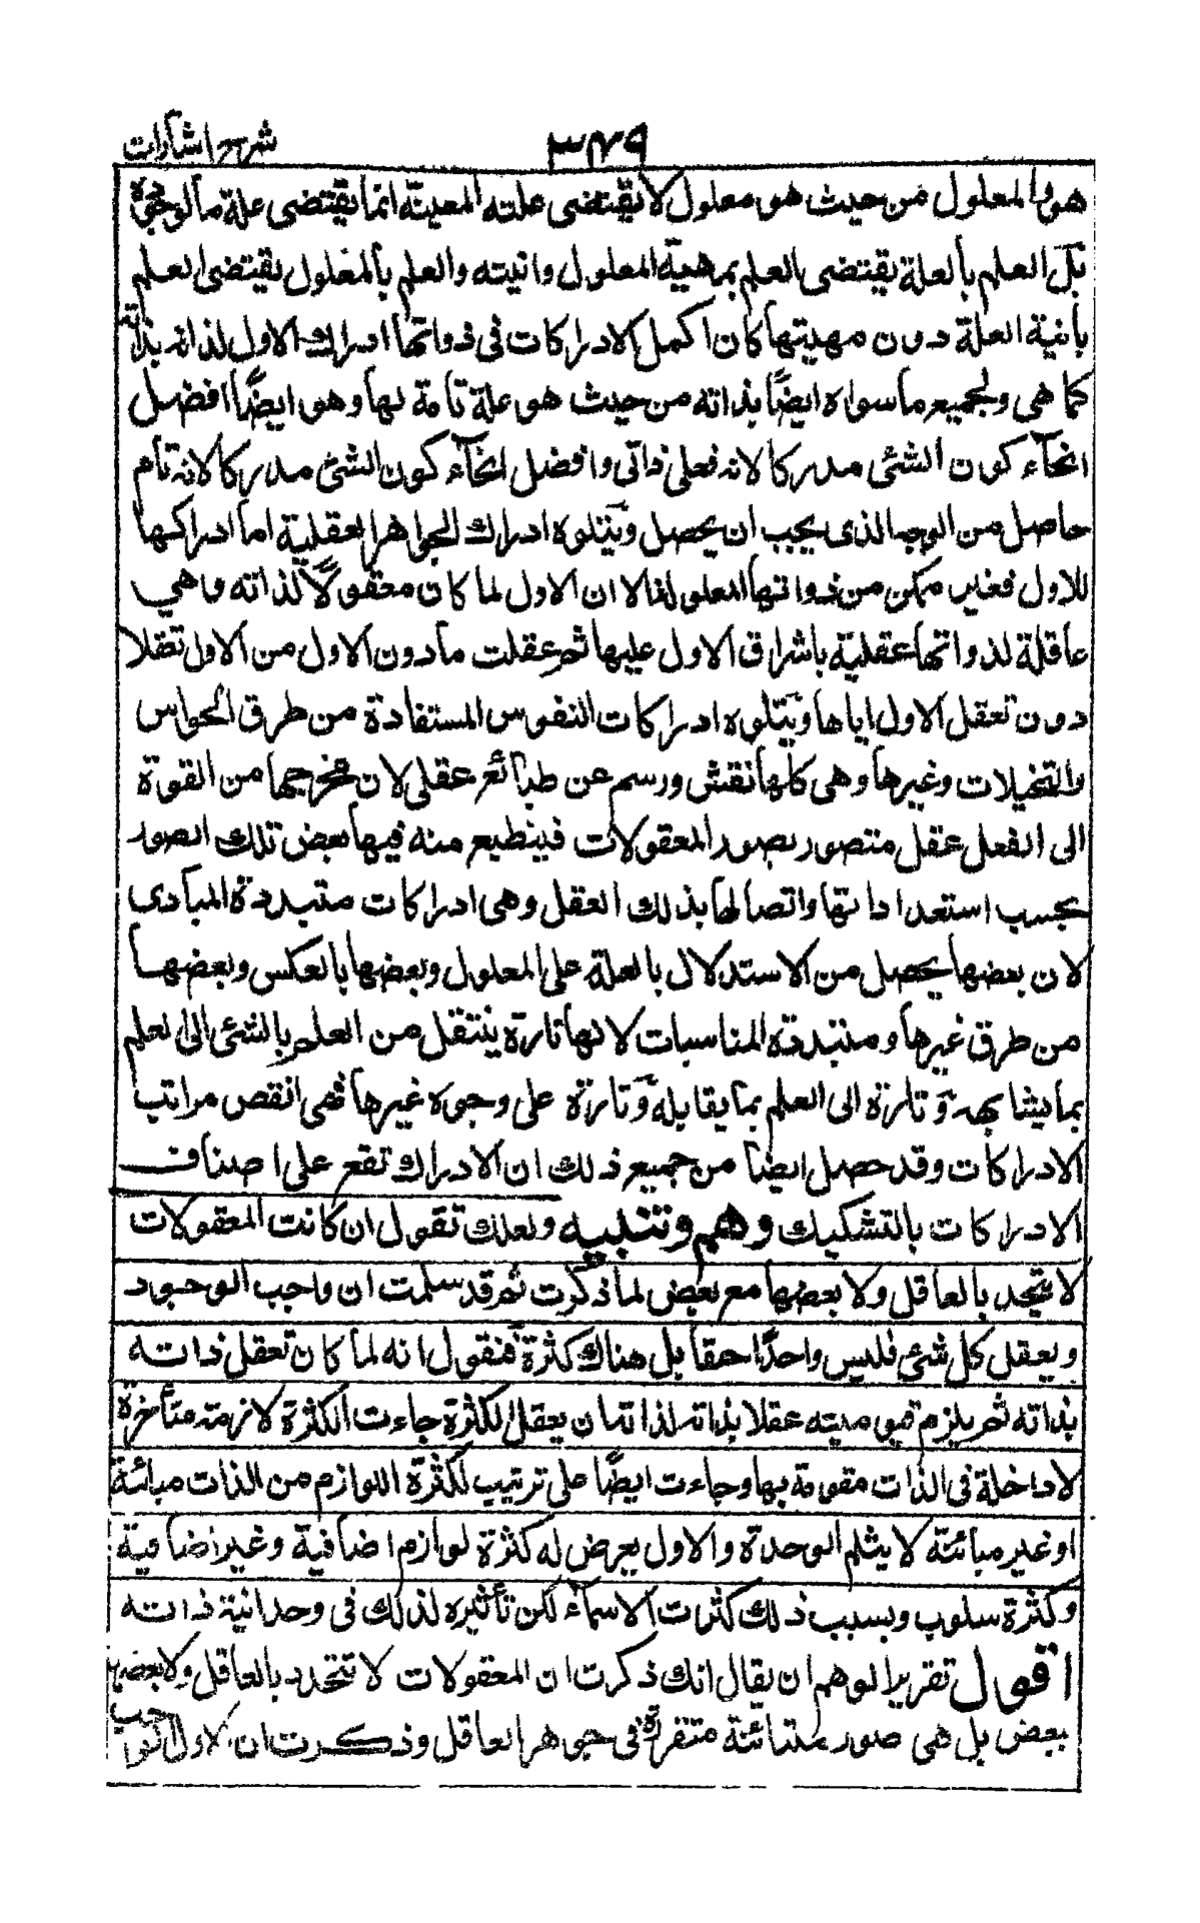 شرح اشارات
٣٤٩
هو والمعلول من حيث هو معلول لا يقتضى علته المعينة انما يقتضى علة ما لوجوده
بل العلم بالعلة يقتضى العلم بمهية المعلول وانيته والعلم بالمعلول يقتضى العلم
بانية العلة دون مهيتها كان اكمل الادراكات فى ذواتها ادراك الاول لذاته بذاته
كما هى ولجميع ما سواه ايضًا بذاته من حيث هو علة تامة لها وهو ايضًا افضل
انحآء كون الشئى مدركا لانه فعلى ذاتى وافضل انحآء كون الشئ مدركا لانه تام
حاصل من الوجه الذى يجب ان يحصل ويتلوه ادراك الجواهر العقلية اما ادراكها
للاول فغير ممكن من ذواتها المعلولة الا ان الاول لما كان معقولًا لذاته وهى
عاقلة لذواتها عقلية باشراق الاول عليها ثم عقلت ما دون الاول من الاول تعقلا
دون تعقل الاول اياها ويتلوه ادراكات النفوس المستفادة من طرق الحواس
والتخيلات وغيرها وهى كلها نقش ورسم عن طبائع عقلى لان مخرجها من القوة
الى الفعل عقل متصور بصور المعقولات فينطبع منه فيها بعض تلك الصور
بحسب استعداداتها واتصالها بذلك العقل وهى ادراكات متبددة المبادى
لان بعضها يحصل من الاستدلال بالعلة على المعلول وبعضها بالعكس وبعضها
من طرق غيرها ومتبددة المناسبات لانها تارة ينتقل من العلم بالشئى الى العلم
بما يشابهه وتارة الى العلم بما يقابله وتارة على وجوه غيرها فهى انقص مراتب
الادراكات وقد حصل ايضا من جميع ذلك ان الادراك تقع على اصناف
الادراكات بالتشكيك وهم وتنبيه ولعلك تقول ان كانت المعقولات
لا يتحد بالعاقل ولا بعضها مع بعض لما ذكرت ثم قد سلمت ان واجب الوجود
ويعقل كل شئ فليس واحدًا حقا بل هناك كثرة فنقول انه لما كان تعقل ذاته
بذاته ثم يلزم قيوميته عقلا بذاته لذاته ان يعقل الكثرة جاءت الكثرة لازمة متأخرة
لا داخلة فى الذات مقومة بها وجاءت ايضًا على ترتيب لكثرة اللوازم من الذات مبائنة
او غير مبائنة لا يثلم الوحدة والاول يعرض له كثرة لوازم اضافية وغير اضافية
وكثرة سلوب وبسبب ذلك كثرت الاسماء لكن تأثيره لذلك فى وحدانية ذاته
اقول تقرير الوهم ان يقال انك ذكرت ان المعقولات لا تتحد بالعاقل ولا بعضها
ببعض بل هى صور متبائنة متقررة فى جوهر العاقل وذكرت ان الاول الواجب